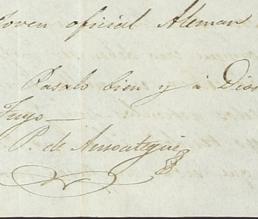 joven oficial Aleman
Pasalo bien y à Dios
Tuyo
P. de Amoategui